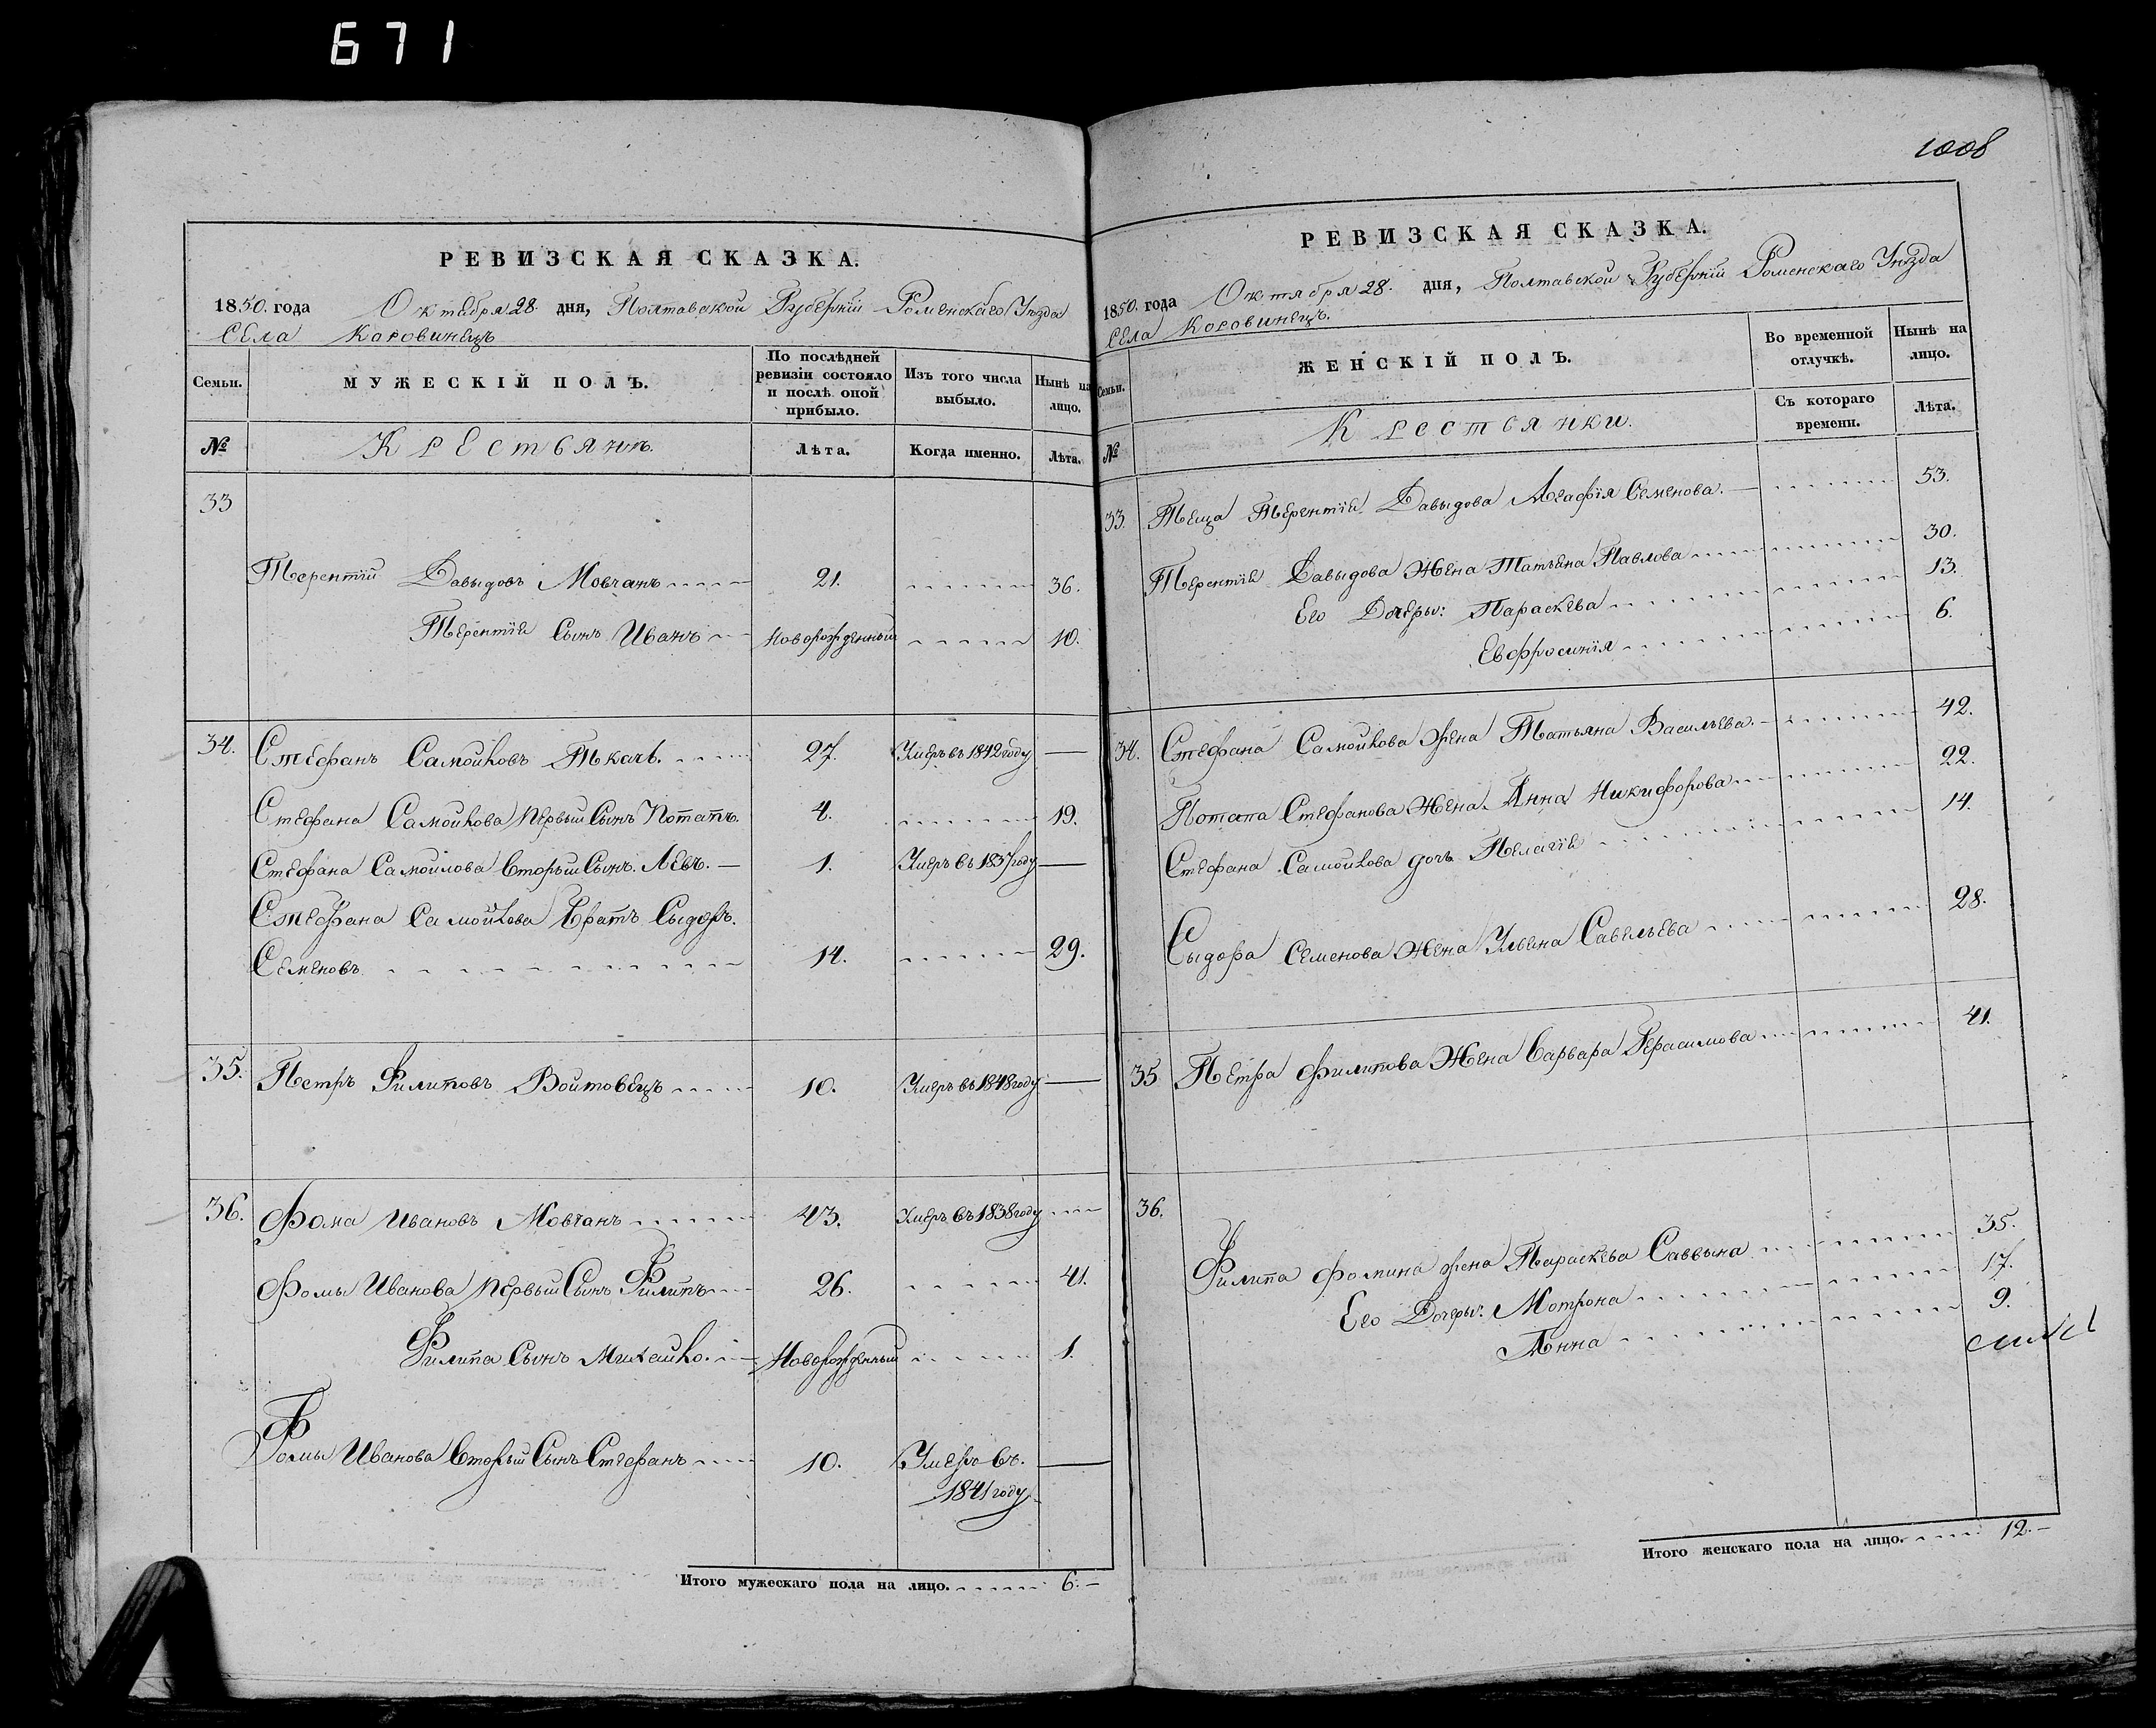 671
РЕВИЗСКАЯ СКАЗКА.
1850. года Октября 28. дня, Полтавской Губернии Роменскаго Уѣзда
Села Коровинецъ
Семьи. МУЖЕСКІЙ ПОЛЪ. По послѣдней ревизіи состояло и послѣ оной прибыло. Изъ того числа выбыло. Нынѣ на лицо.
№ Крестьянъ. Лѣта. Когда именно. Лѣта.
33
Терентій Давыдовъ Мовчанъ 21. 36.
Терентія Сынъ Иванъ Новорожденный 10.
34. Стефанъ Самойловъ Ткачъ. 27. Умеръ въ 1842 году —
Стефана Самойлова первый Сынъ Потапъ. 4. 19.
Стефана Самойлова Вторый Сынъ Левъ. — 1. Умеръ въ 1837 году —
Стефана Самойлова Братъ Сыдоръ.
Семеновъ 14. 29.
35. Петръ Филиповъ Войтовецъ 10. Умеръ въ 1848 году —
36. Фома Ивановъ Мовчанъ 43. Умеръ въ 1838 году
Фомы Иванова первый Сынъ Филипъ 26. 41.
Филипа Сынъ Михайло. Новорожденный 1.
Фомы Иванова Вторый Сынъ Стефанъ 10. Умеръ въ.
1841 году —
Итого мужескаго пола на лицо. 6. —
1008
РЕВИЗСКАЯ СКАЗКА.
1850. года Октября 28. дня, Полтавской Губерніи Роменскаго Уѣзда
Села Коровинецъ.
Семьи. ЖЕНСКІЙ ПОЛЪ. Во временной отлучкѣ. Нынѣ на лицо.
№ Крестьянки. Съ котораго времени. Лѣта.
33. Теща Терентія Давыдова Агафія Семенова. — 53.
Терентія Давыдова Жена Татьяна Павлова 30.
Его Дочеры: Параскева 13.
Евфросинія 6.
34. Стефана Самойлова жена Татьяна Васильева. 42.
Потапа Стефанова Жена Анна Никифорова 22.
Стефана Самойлова дочь Пелагія 14.
Сыдора Семенова Жена Ульяна Савельева 28.
35 Петра Филипова Жена Варвара Герасимова 41.
36.
Филипа Фомина жена Параскева Саввына 35.
Его Дочеры: Мотрона 17.
Анна 9.
Итого женскаго пола на лицо. 12. —